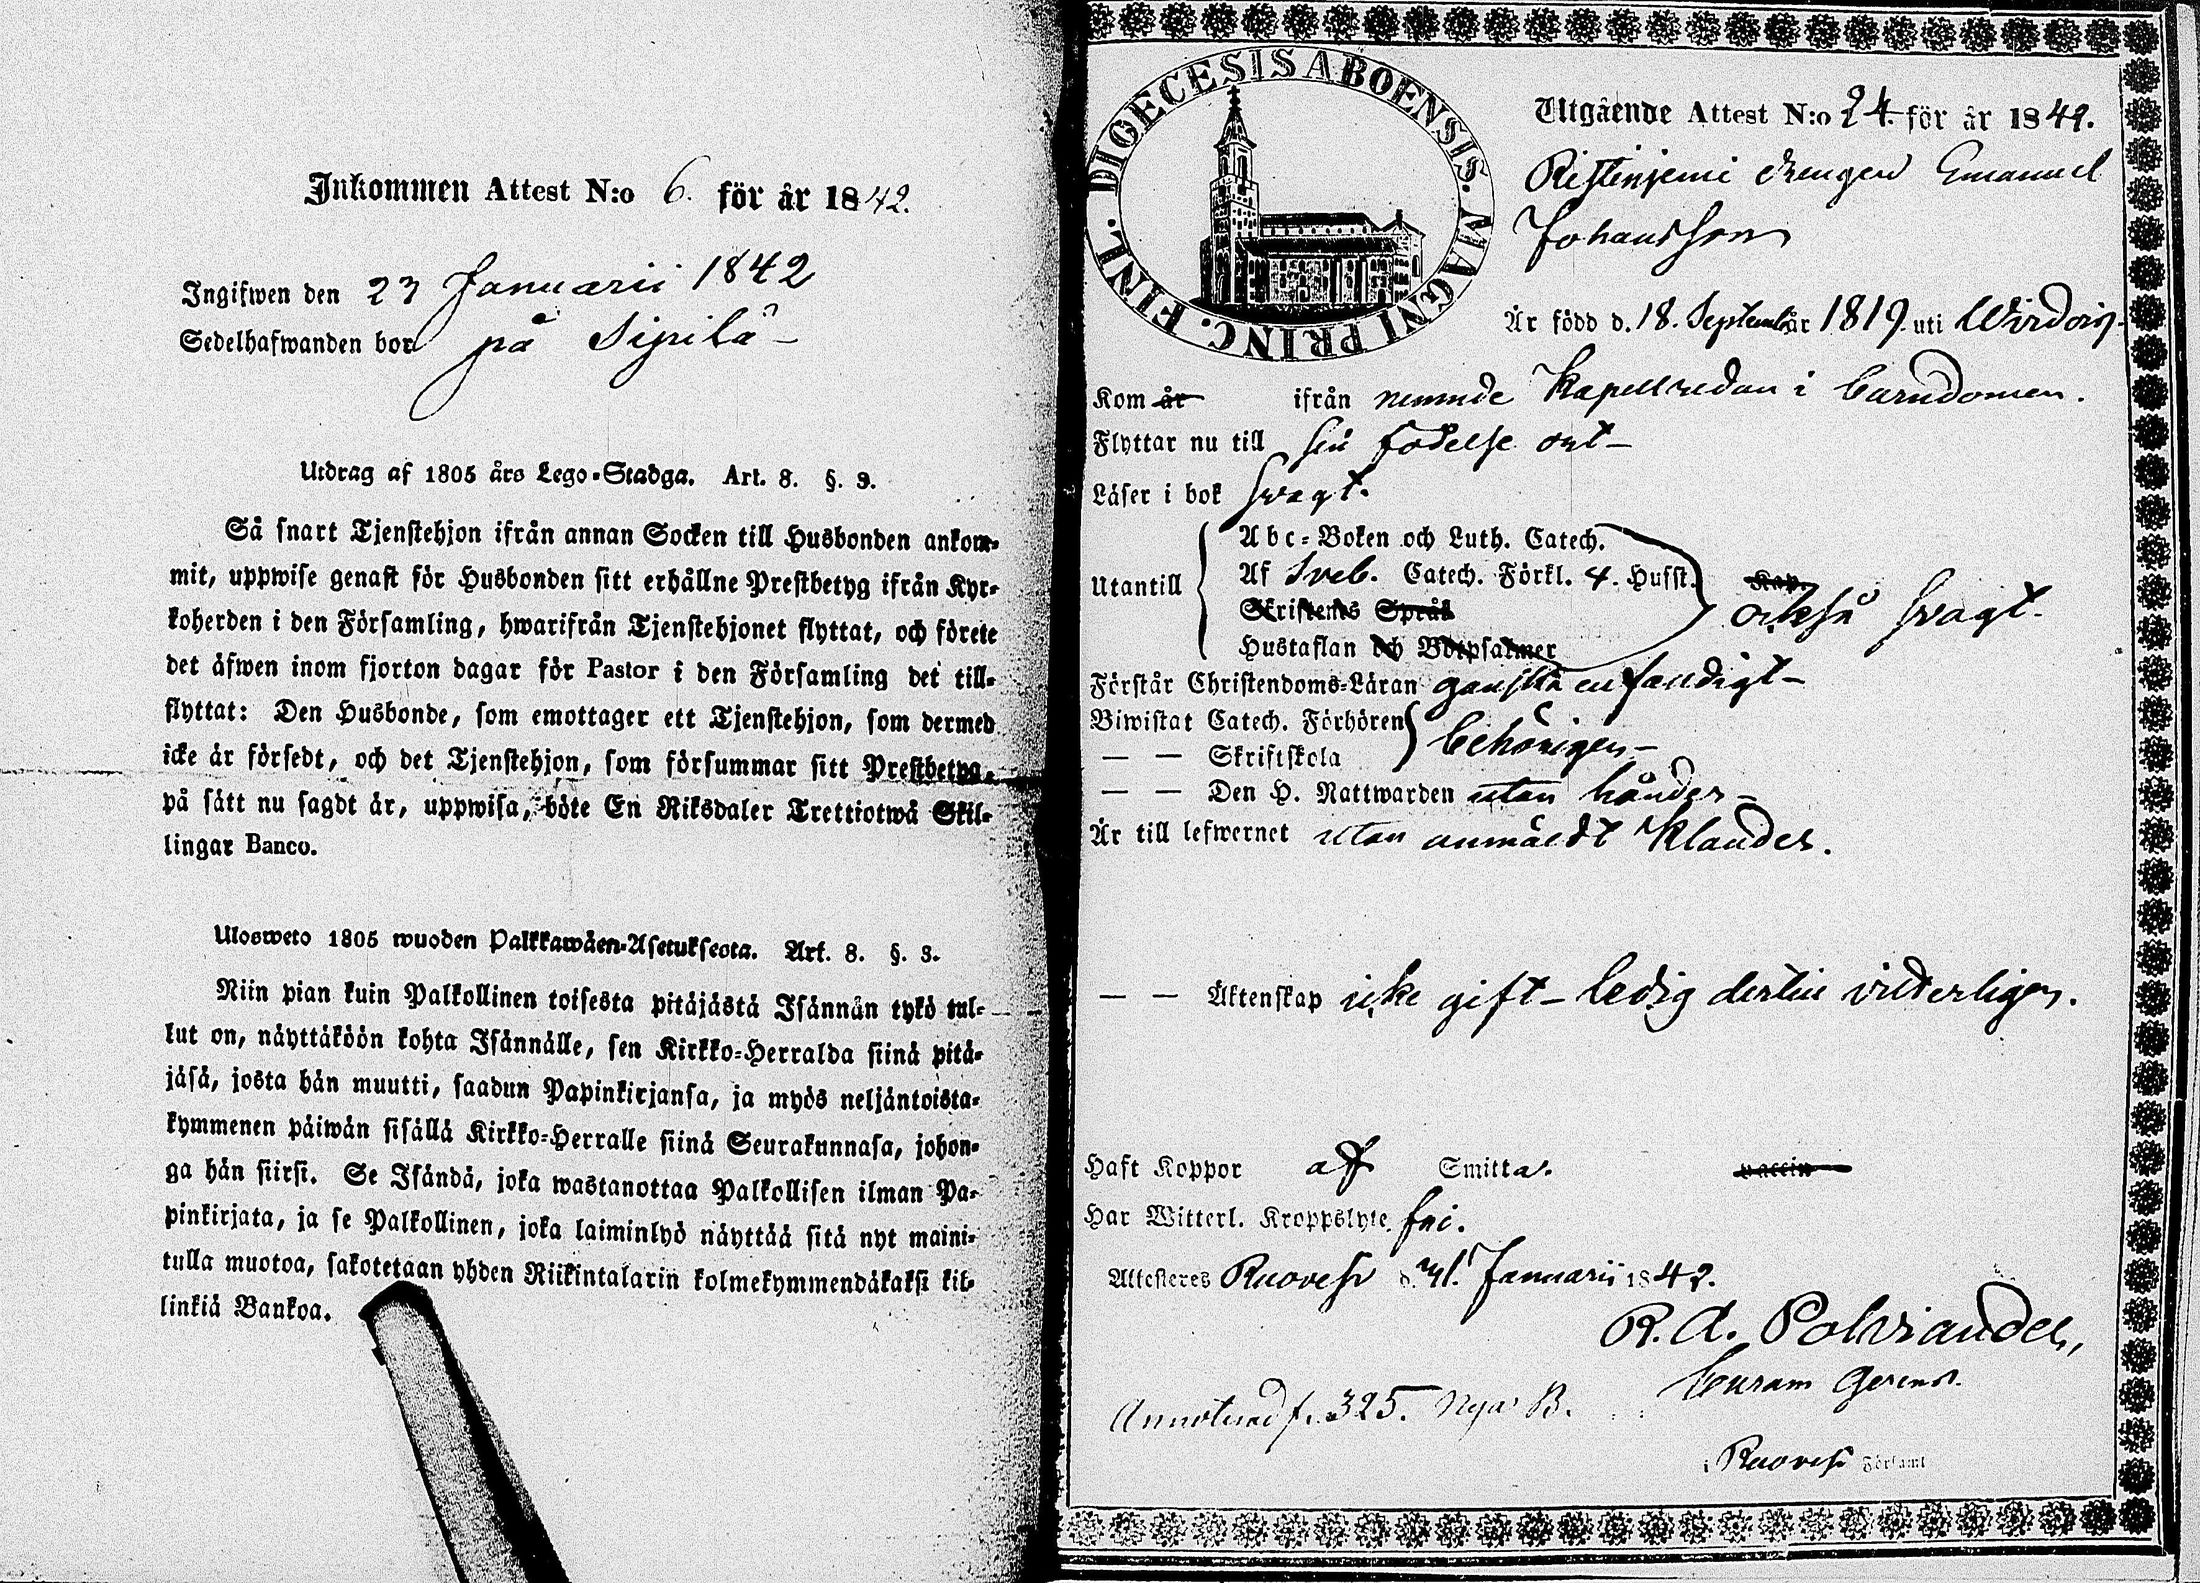 Inkommen Attest N:o 6. för år 1842.
Ingifwen den 23 Januarii 1842
Sedelhafwanden bor på Sipilä
Utdrag af 1805 års Lego-Stadga. Art. 8. §. 3.
Så snart Tjenstehjon ifrån annan Socken till Husbonden ankom-
mit, uppwise genast för Husbonden sitt erhållne Prestbetyg ifrån Kyr-
koherden i den Församling, hwarifrån Tjenstehjonet flyttat, och förete
det äfwen inom fjorton dagar för Pastor i den Församling det till-
flyttat: Den Husbonde, som emottager ett Tjenstehjon, som dermed
icke är försedt, och det Tjenstehjon, som försummar sitt Prestbetyg,
på sätt nu sagdt är, uppwisa, böte En Riksdaler Trettiotwå Skil-
lingar Banco.
Ulosweto 1805 wuoden Palkkawäen-Asetuksesta. Art. 8. §. 3.
Niin pian kuin Palkollinen toisesta pitäjästä Isännän tykö tul-
lut on, näyttäköön kohta Isännälle, sen Kirkko-Herralda siinä pitä-
jäsä, josta hän muutti, saadun Papinkirjansa, ja myös neljäntoista-
kymmenen päiwän sisällä Kirkko-Herralle siinä Seurakunnasa, johon-
ga hän siirsi. Se Isändä, joka wastanottaa Palkollisen ilman Pa-
pinkirjata, ja se Palkollinen, joka laiminlyö näyttää sitä nyt maini-
tulla muotoa, sakotetaan yhden Riikintalarin kolmekymmendäkaksi kil-
linkiä Bankoa.
DIOECESIS ABOENSIS. MAGNI PRINC. FINL.
Utgående Attest N:o 24 för år 1842.
Ristinjemi drengen Emanuel
Johansson
Är född d. 18. September år 1819. uti Wirdois
Kom år ifrån nemnde Kapell redan i barndomen.
Flyttar nu till sin födelse ort
Läser i bok svagt.
Utantill
Abc-Boken och Luth. Catech.
Af Sveb. Catech. Förkl. 4. Hufst. Kap.
Skriftenes Språk
också svagt.
Hustaflan och Botpsalmer
Förstår Christendoms-Läran ganska enfaldigt
Biwistat Catech. Förhören
— — Skriftskola
behörigen
— — Den H. Nattwarden utan hinder
Är till lefwernet utan anmäldt klander.
— — Äktenskap icke gift - ledig dertill vitterligen.
Haft Koppor af Smitta. vaccin
Har Witterl. Kroppslyte fri.
Attesteres Ruovesi d. 21. Januarii 1842.
R. A. Polviander,
Curam Gerens.
Annoterad f. 325. Nya B.
i Ruovesi Församl